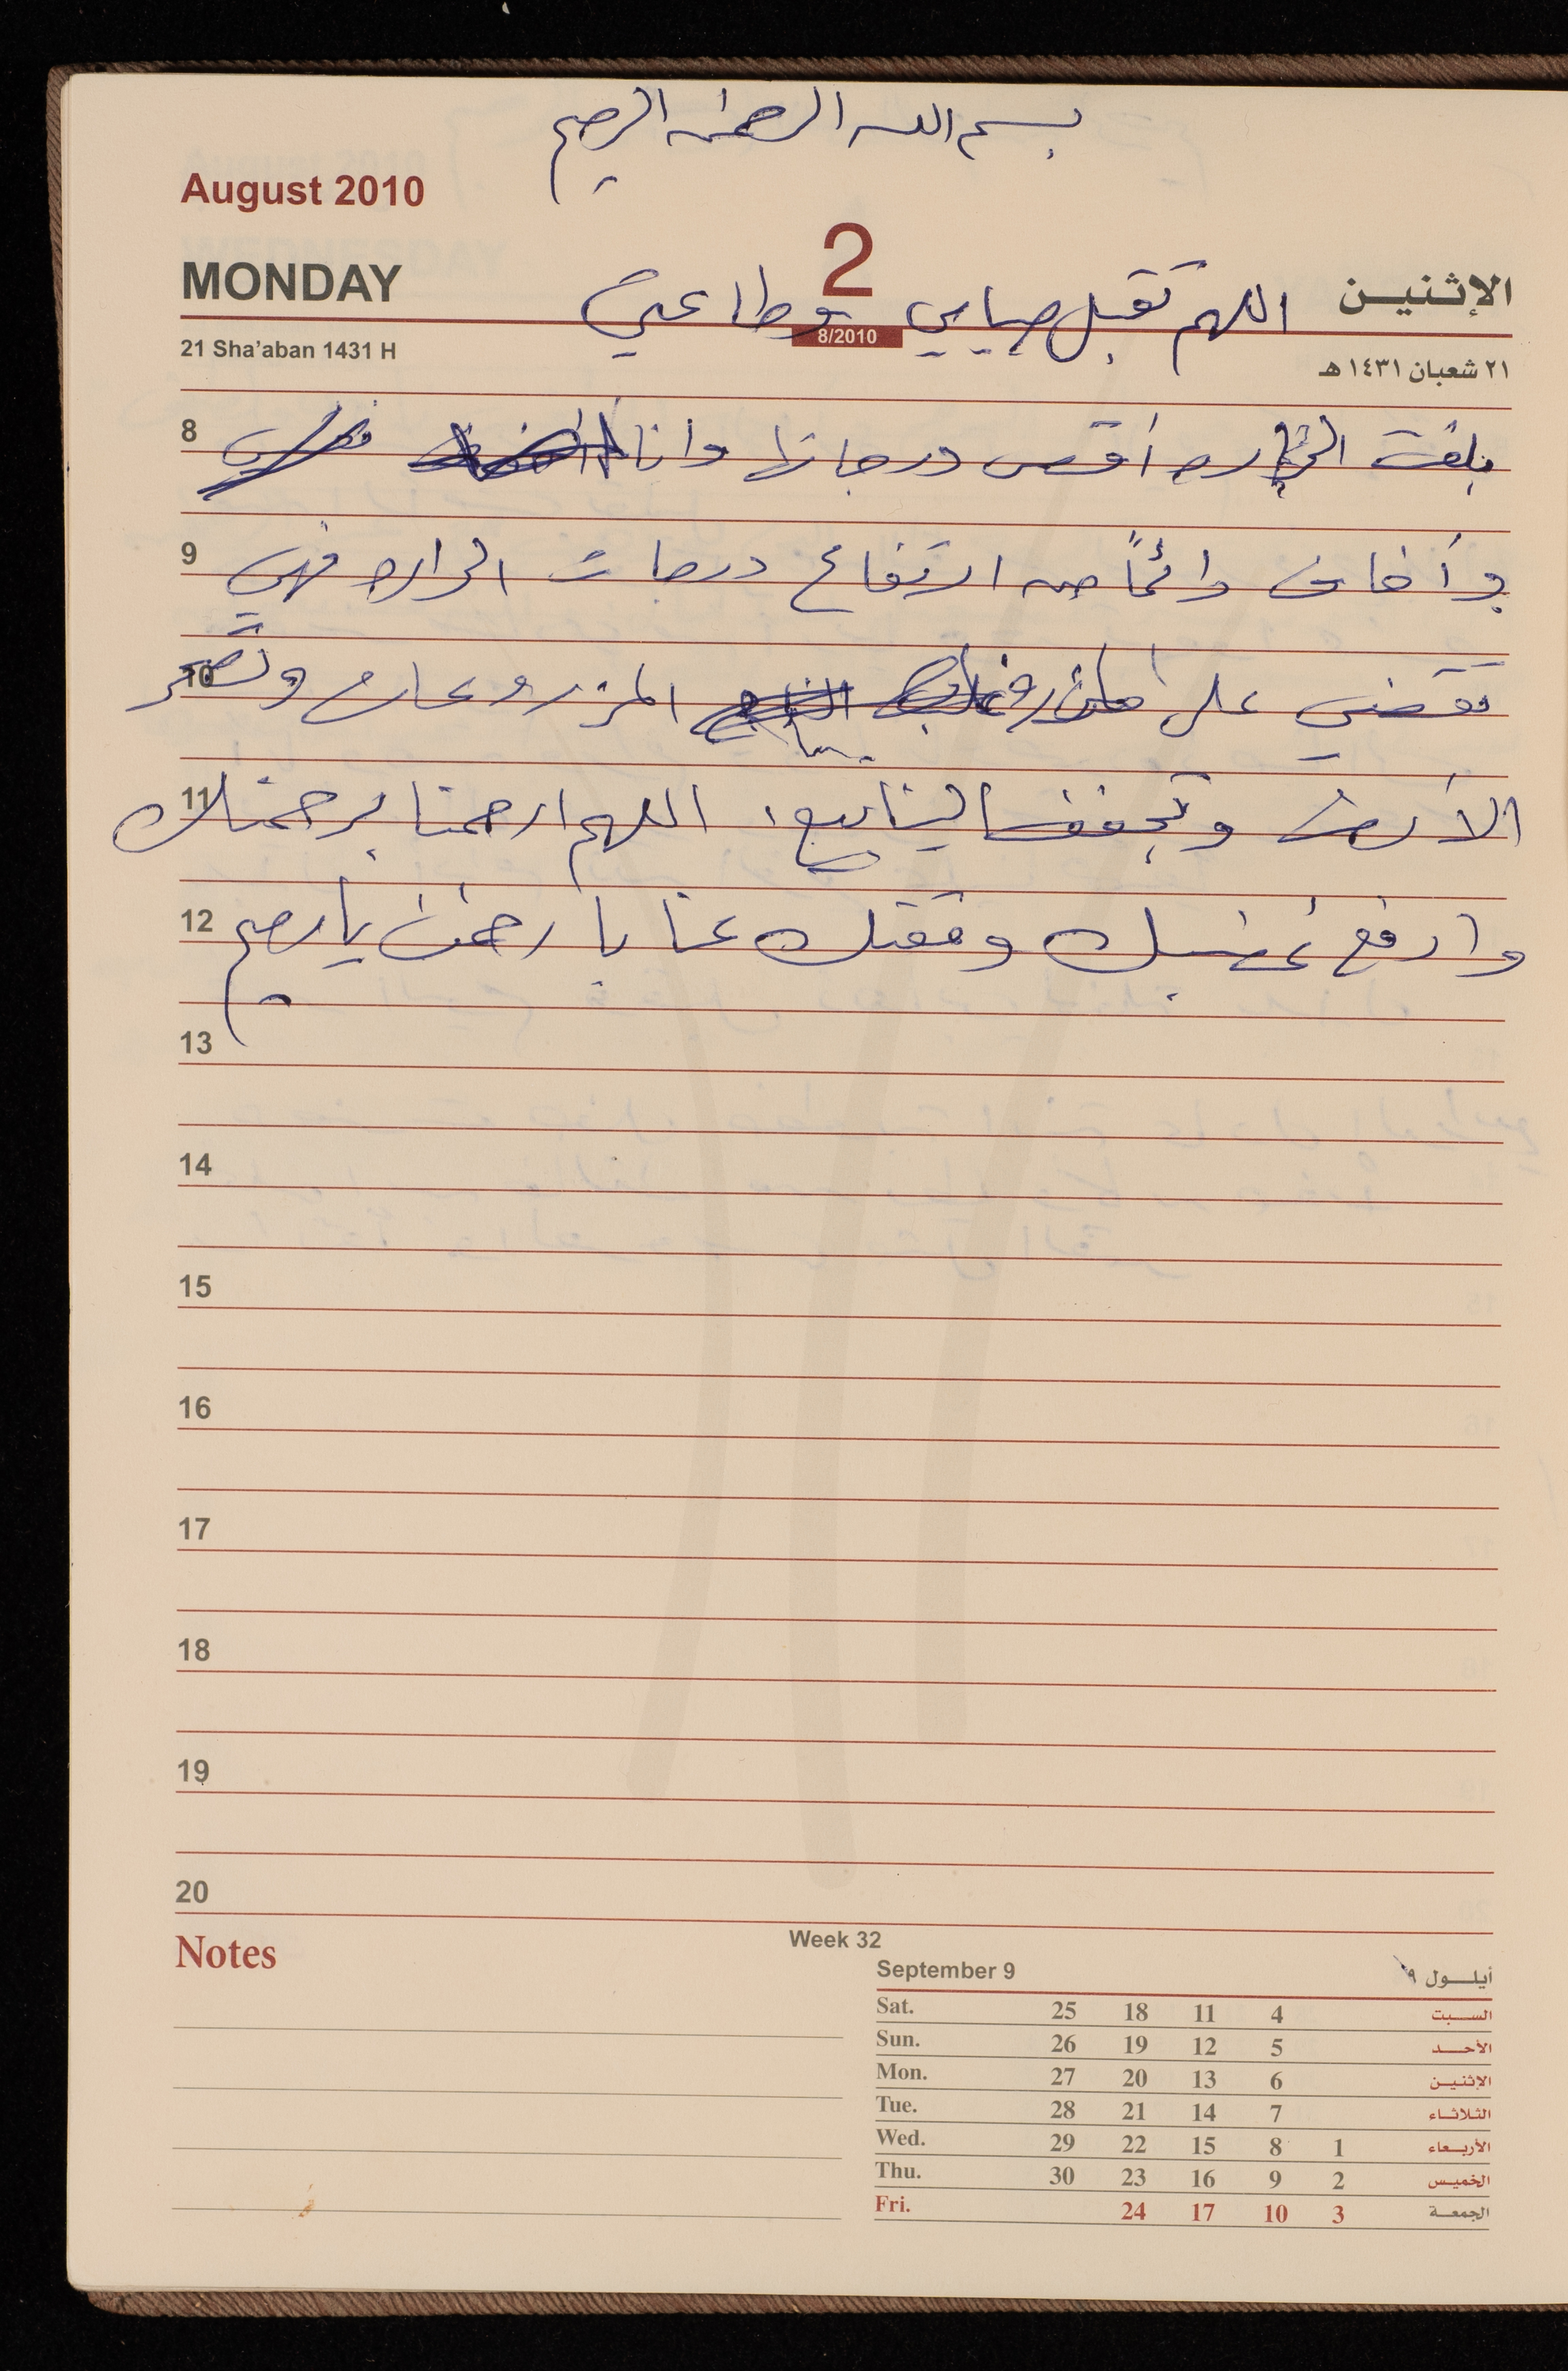 بسم الله الرحمن الرحيم
August 2010
2
MONDAY
الإثنين
اللهم تقبل صيامي وطاعتي
8/2010
21 Sha'aban 1431 H
٢١ شعبان ١٤٣١ هـ
8 بلغت الحراره أقصى درجاتها وانا
9 وأخاف دائماً من ارتفاع درجات الحراره فهي
10 تقضي على المزروعات وتصحر
11 الأرض وتجفف الينابيع، اللهم ارحمنا برحمتك
12 وارفع غضبك ومقتك عنا يا رحمن يا رحيم
13
14
15
16
17
18
19
20
Notes
Week 32
September 9 أيلول ٩
Sat. 25 18 11 4 السبت
Sun. 26 19 12 5 الأحد
Mon. 27 20 13 6 الإثنين
Tue. 28 21 14 7 الثلاثاء
Wed. 29 22 15 8 1 الأربعاء
Thu. 30 23 16 9 2 الخميس
Fri. 24 17 10 3 الجمعة